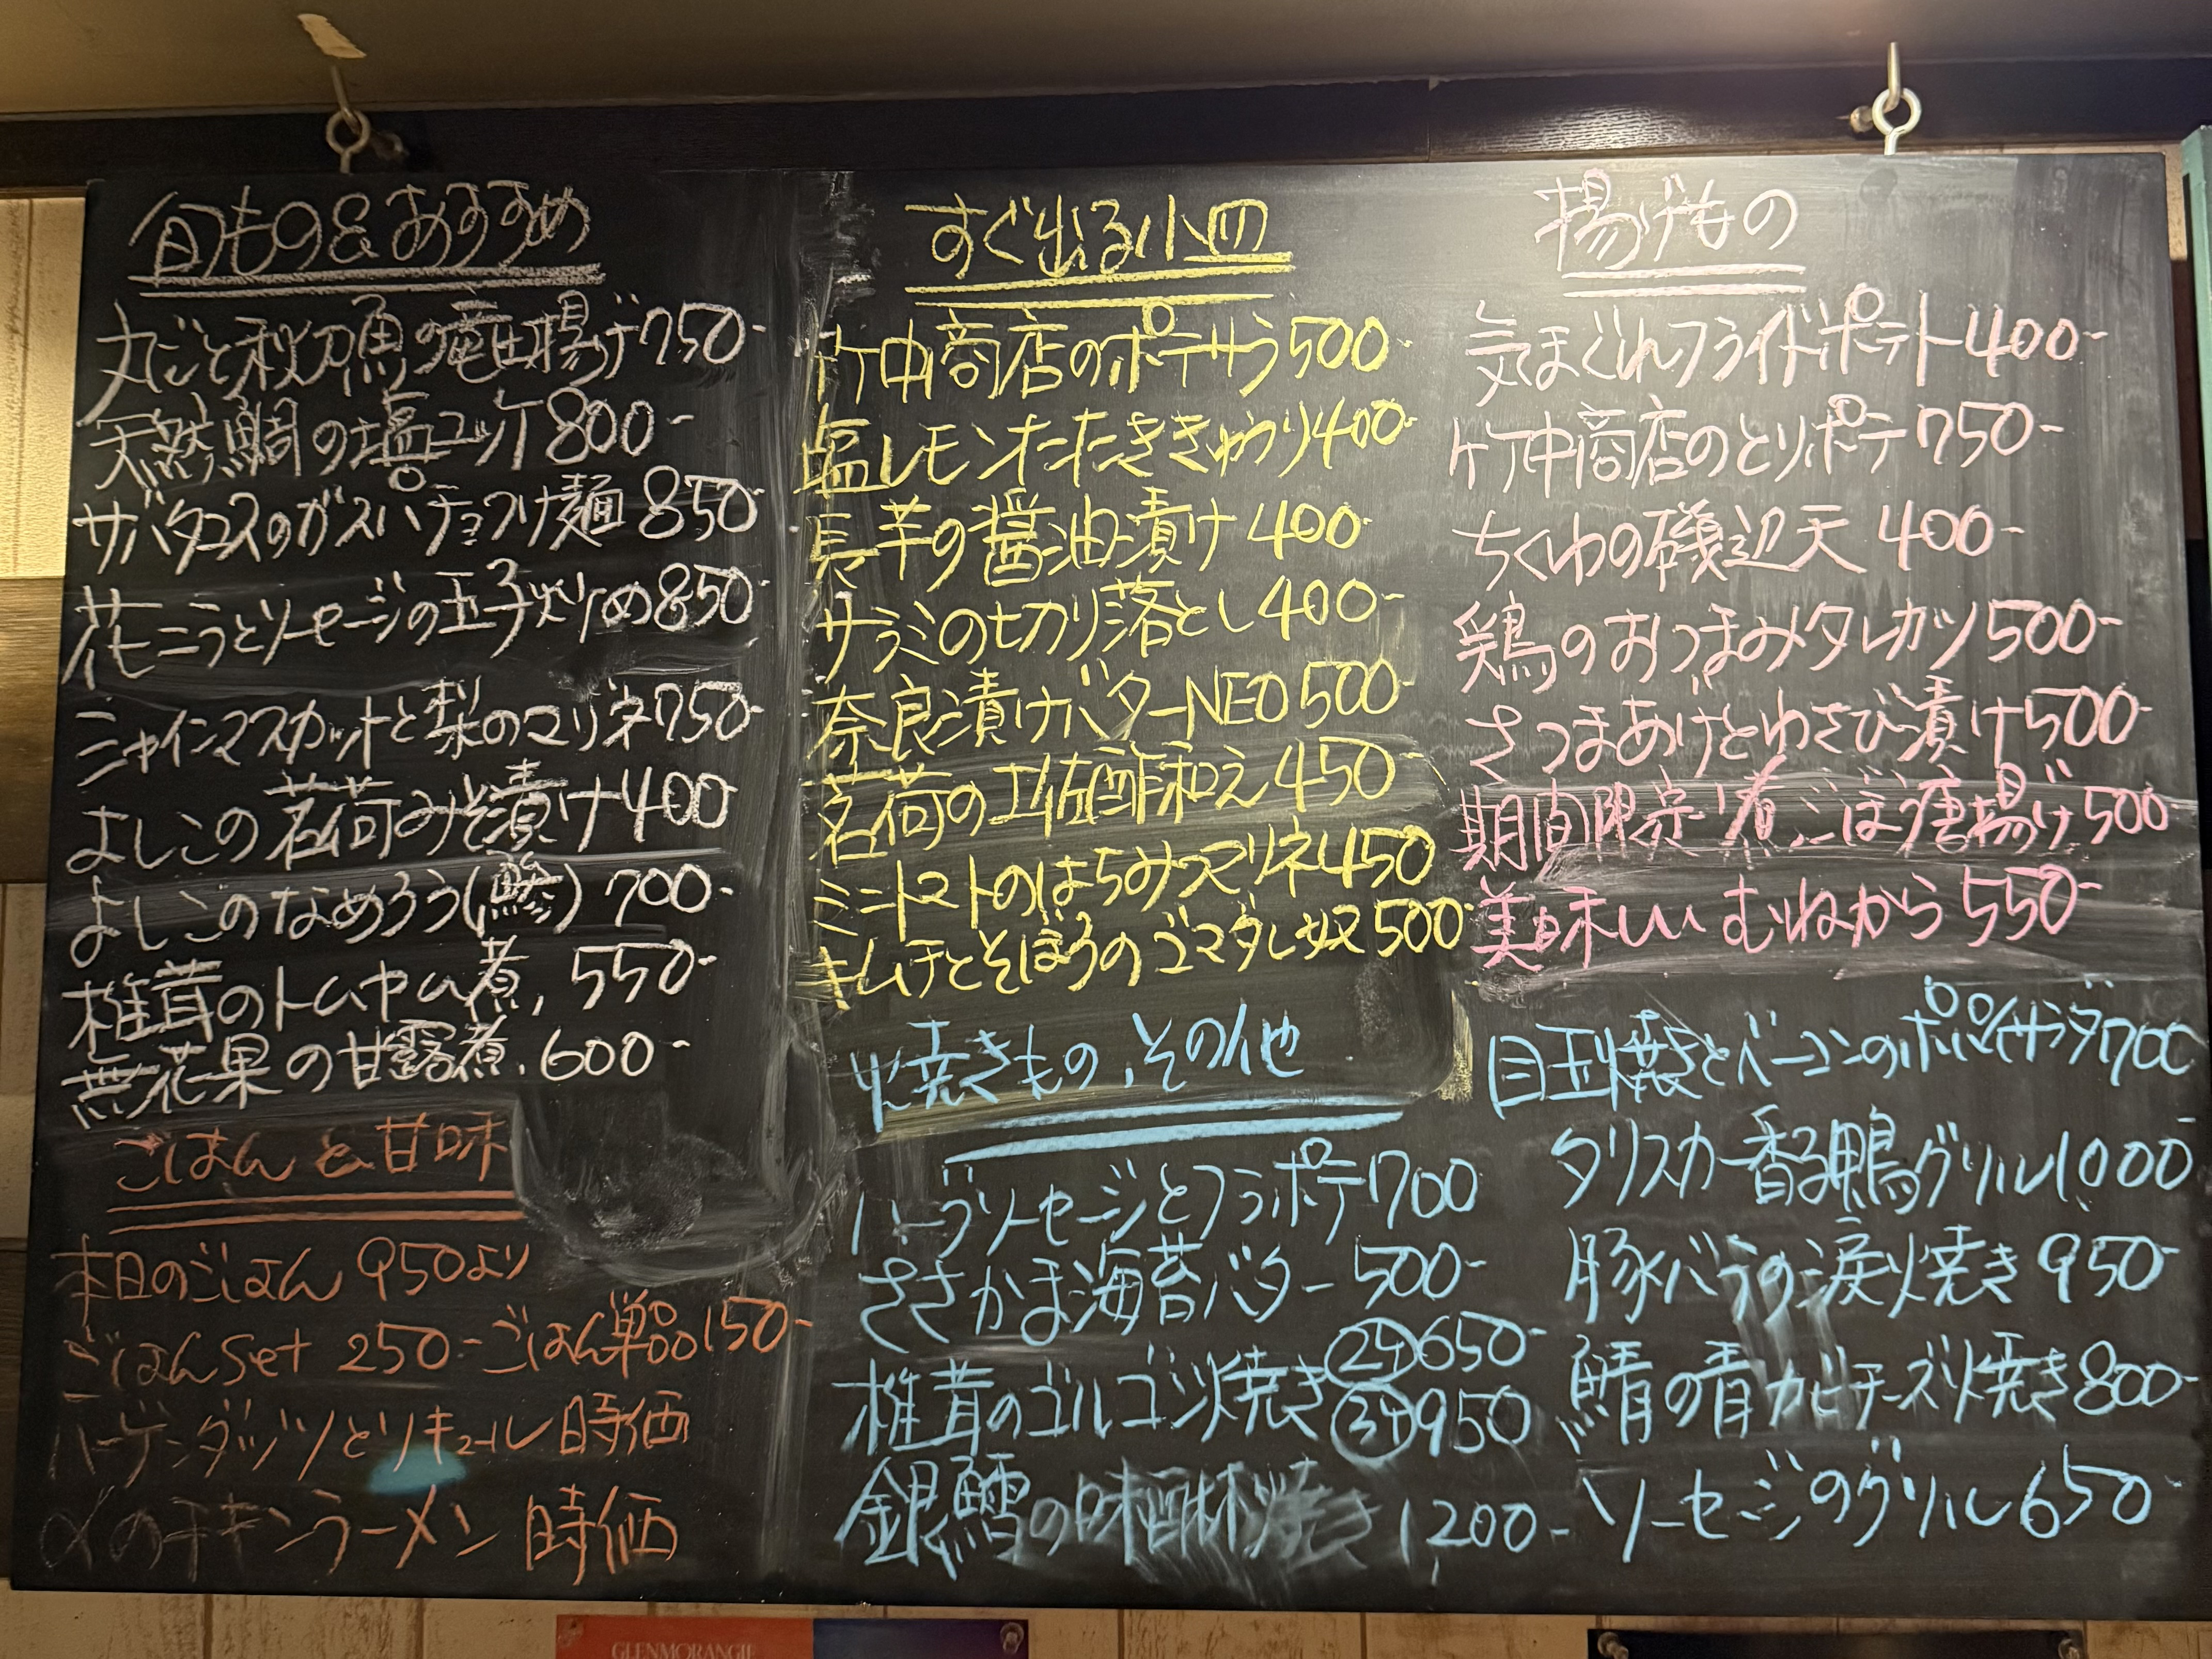 旬もの&おすすめ
丸ごと秋刀魚の竜田揚げ750-
天然鯛の塩ユッケ800-
サバタコスのガスパチョつけ麺850-
花ニラとソーセージの玉子炒め850-
シャインマスカットと梨のマリネ750-
よしこの茗荷みそ漬け400
よしこのなめろう(鯵)700-
椎茸のトムヤム煮,550-
無花果の甘露煮,600-
ごはんと甘味
本日のごはん 950より
ごはんset 250-ごはん単品150-
ハーゲンダッツとリキュール 時価
αのチキンラーメン 時価
すぐ出る小皿
竹中商店のポテサラ500-
塩レモンたたききゅうり400-
長芋の醤油漬け400-
サラミの切り落とし400-
奈良漬けバターNEO500-
茗荷の土佐酢和え450-
ミニトマトのはちみつマリネ450
キムチとそぼろのゴマダレ奴500-
焼きもの、その他
ハーブソーセージとフラポテ700
ささかま海苔バター500-
椎茸のゴルゴンゾーラ焼き
2ケ650-
3ケ950
銀鱈の味醂焼き1200-
揚げもの
気まぐれフライドポテト400-
竹中商店のとりポテ750-
ちくわの磯辺天400-
鶏のおつまみタレカツ500-
さつまあげとわさび漬け500-
期間限定!煮ごぼう唐揚げ500-
美味しいむねから550-
目玉焼きとベーコンのポパイサラダ700
タリスカー香る鴨グリル1000
豚バラの涙焼き950-
鯖の青カビチーズ焼き800-
ソーセージのグリル650-
GLENMORANGIE